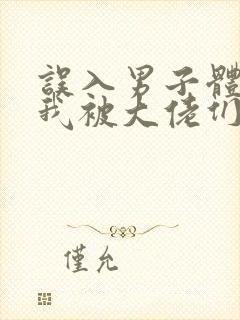 誤入男子體
我被大佬们
僅允